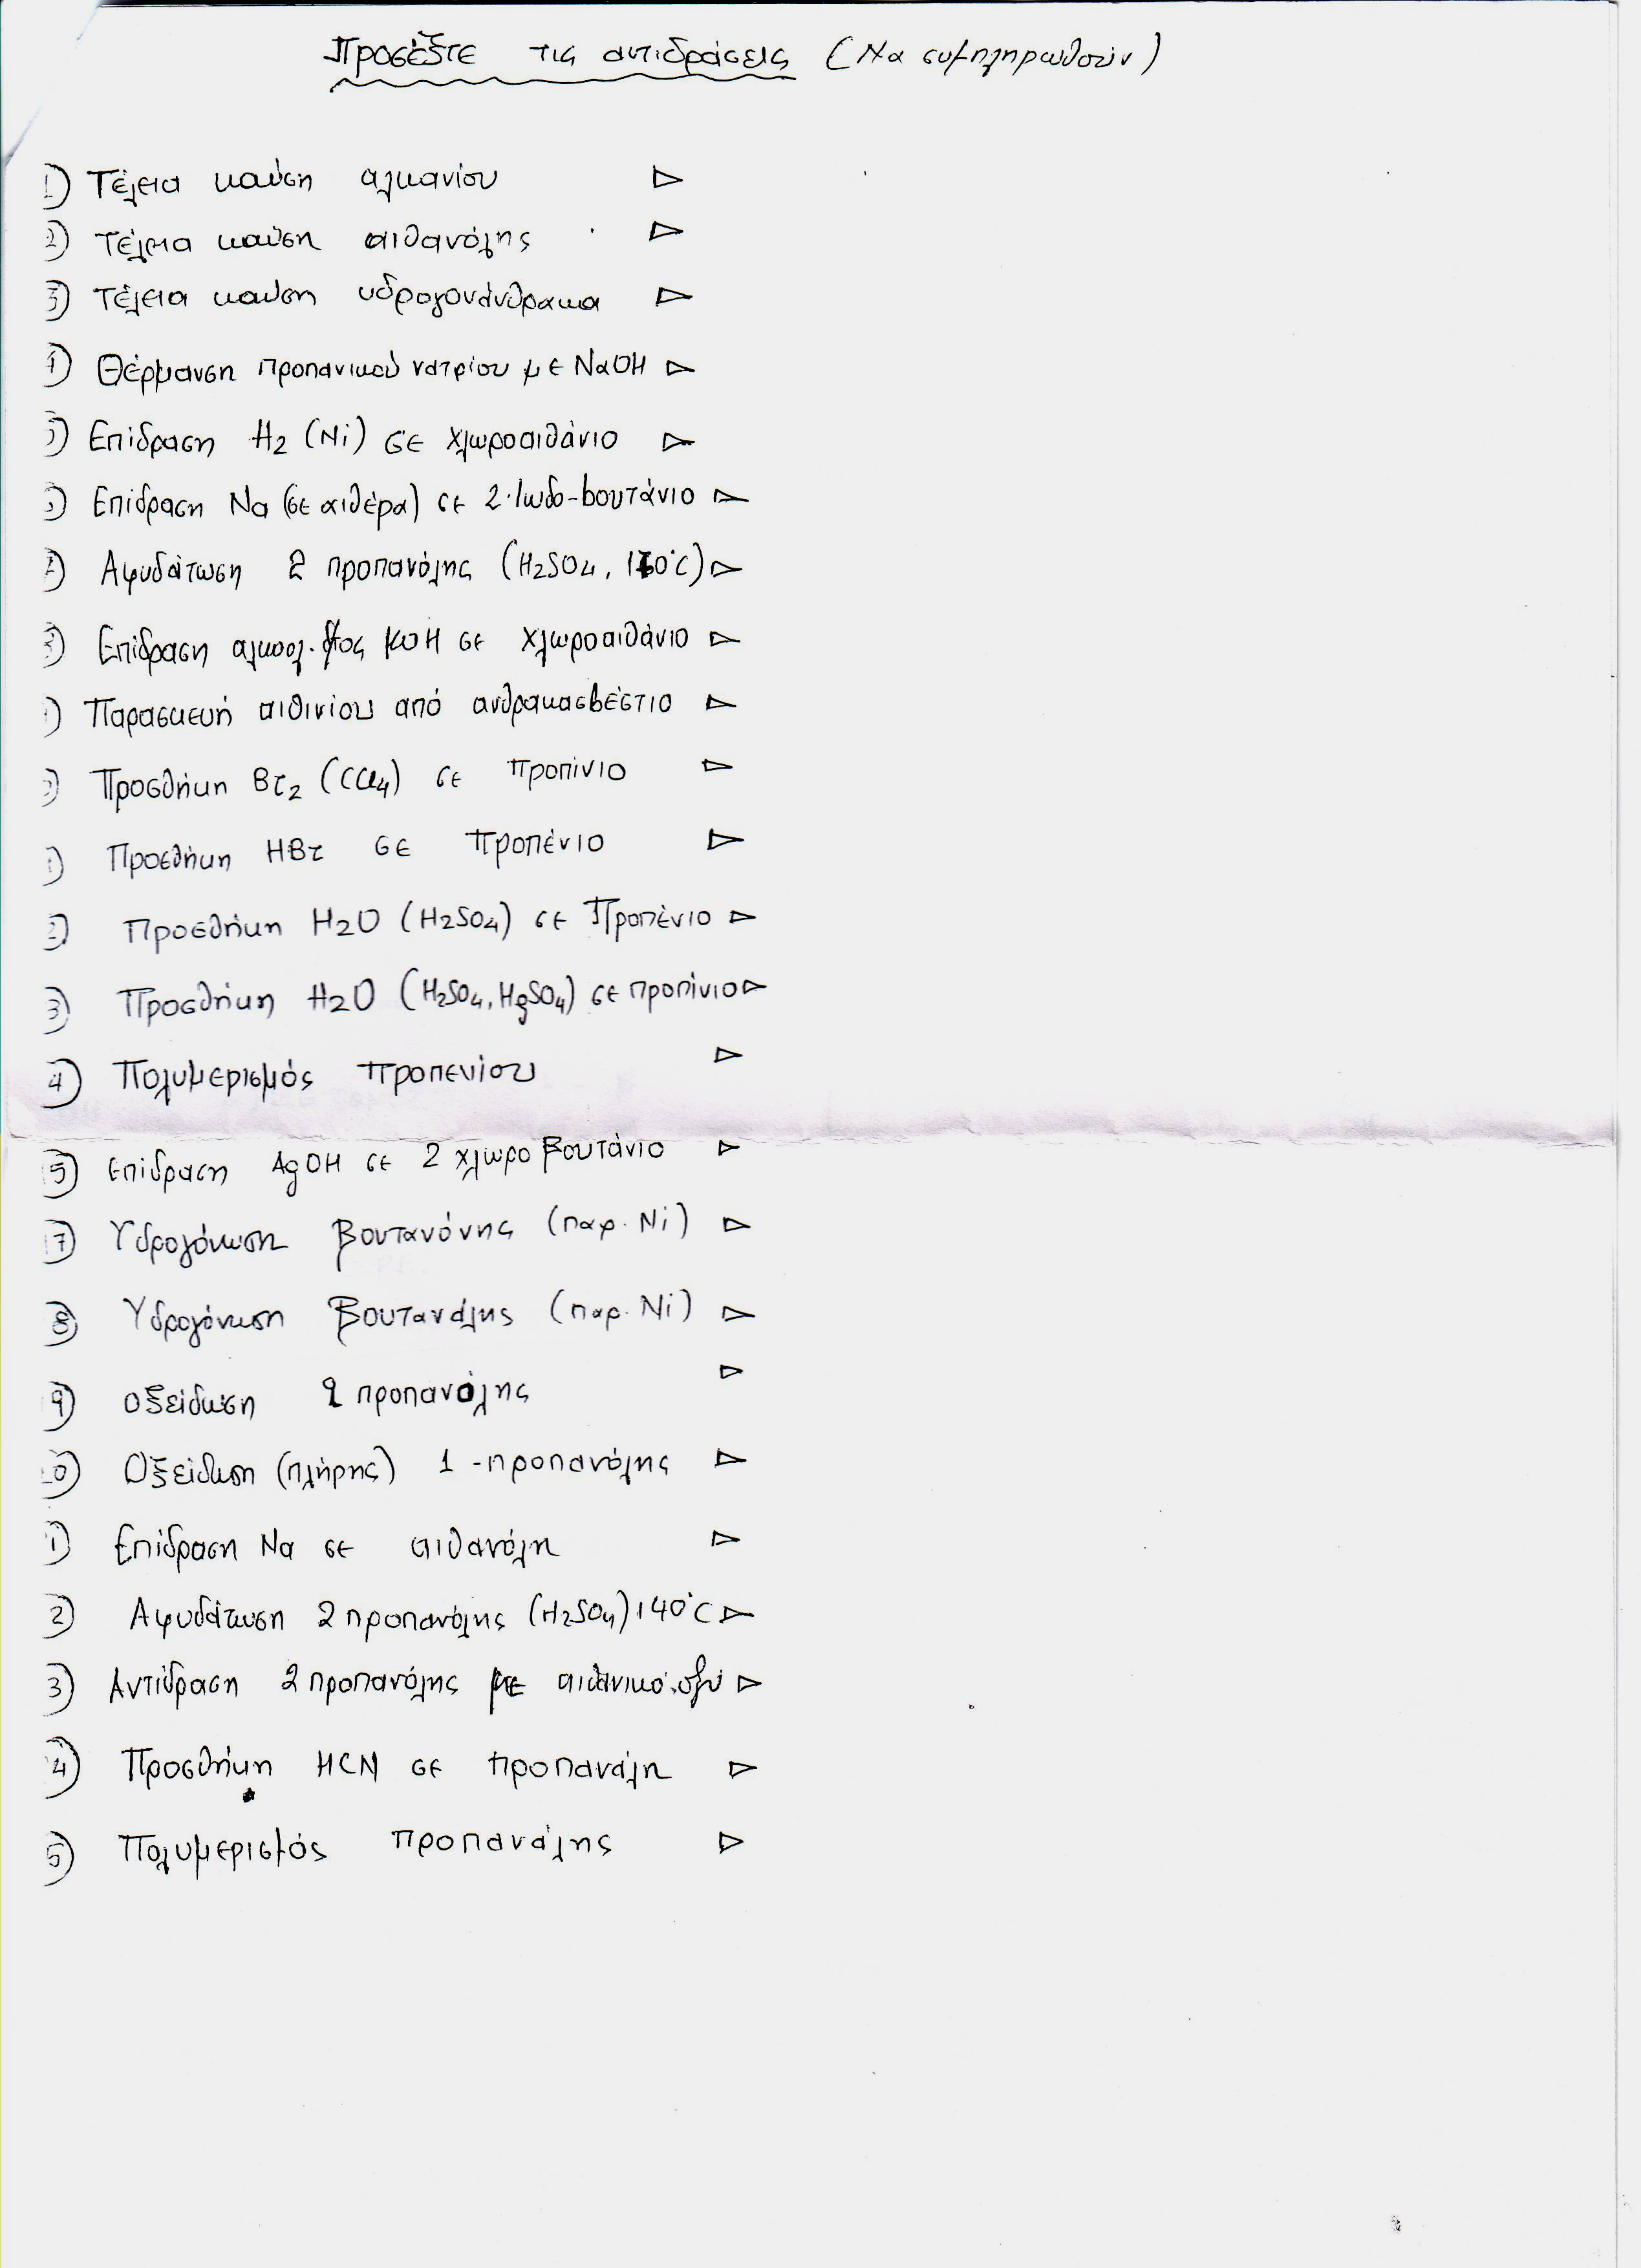 Προσέξτε τις αντιδράσεις (Να συμπληρωθούν)
1) Τέλεια καύση αλκανίου ▷
2) Τέλεια καύση αιθανόλης ▷
3) Τέλεια καύση υδρογονάνθρακα ▷
4) Θέρμανση προπανικού νατρίου με NaOH ▷
) Επίδραση H2 (Ni) σε χλωροαιθάνιο ▷
) Επίδραση Na (σε αιθέρα) σε 2-Ιωδο-βουτάνιο ▷
) Αφυδάτωση 2 προπανόλης (H2SO4, 170°C) ▷
) Επίδραση αλκοολ. δτος KOH σε χλωροαιθάνιο ▷
) Παρασκευή αιθινίου από ανθρακασβέστιο ▷
) Προσθήκη Br2 (CCl4) σε προπίνιο ▷
1) Προσθήκη HBr σε προπένιο ▷
2) Προσθήκη H2O (H2SO4) σε Προπένιο ▷
3) Προσθήκη H2O (H2SO4, HgSO4) σε προπίνιο ▷
4) Πολυμερισμός προπενίου ▷
5) Επίδραση AgOH σε 2 χλωρο βουτάνιο ▷
17) Υδρογόνωση βουτανόνης (παρ. Ni) ▷
18) Υδρογόνωση βουτανάλης (παρ. Ni) ▷
19) Οξείδωση 2 προπανόλης ▷
20) Οξείδωση (πλήρης) 1-προπανόλης ▷
1) Επίδραση Na σε αιθανόλη ▷
2) Αφυδάτωση 2 προπανόλης (H2SO4) 140°C ▷
3) Αντίδραση 2 προπανόλης με αιθανικό οξύ ▷
4) Προσθήκη HCN σε προπανάλη ▷
5) Πολυμερισμός προπανάλης ▷